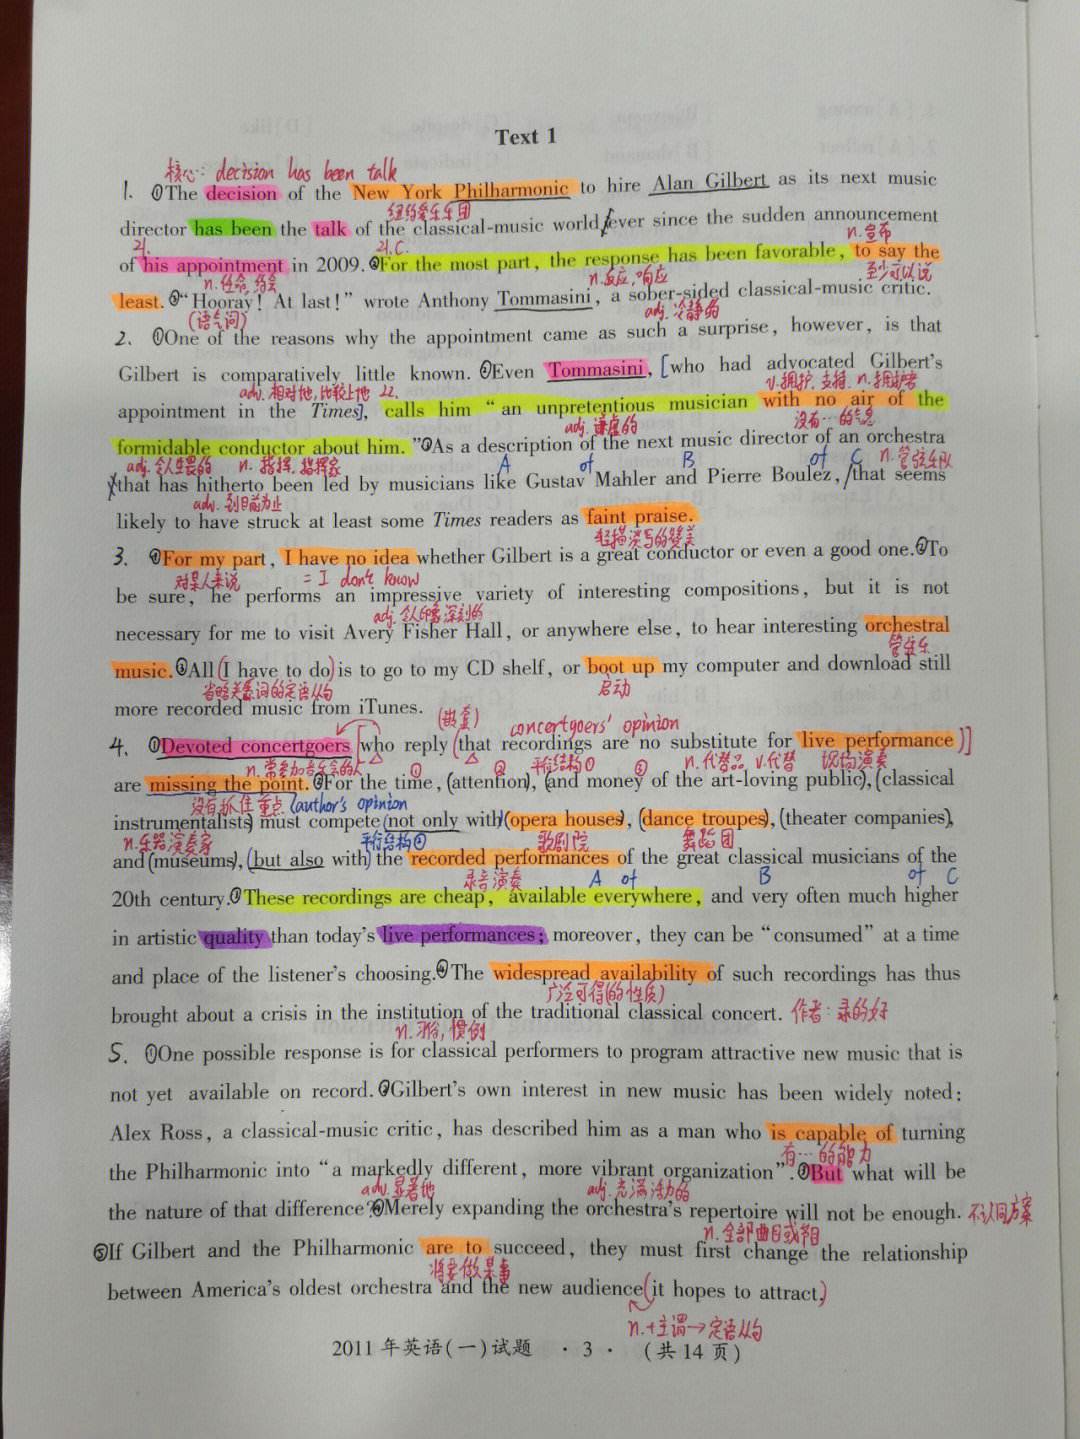 Text 1
核心: decision has been talk
1. ①The decision of the New York Philharmonic to hire Alan Gilbert as its next music
纽约爱乐乐团
director has been the talk of the classical-music world ever since the sudden announcement
21. 21.C. n.宣布
of his appointment in 2009. ②For the most part, the response has been favorable, to say the
n.任命,约会 n.反应,响应 至少可以说
least. ③“Hooray! At last!” wrote Anthony Tommasini, a sober-sided classical-music critic.
(语气词) adj.冷静的
2. ①One of the reasons why the appointment came as such a surprise, however, is that
Gilbert is comparatively little known. ②Even Tommasini, [who had advocated Gilbert’s
adv.相对地,比较上地 22. v.拥护,支持. n.拥护者
appointment in the Times], calls him “an unpretentious musician with no air of the
adj.谦虚的 没有…的气息
formidable conductor about him.”③As a description of the next music director of an orchestra
adj.令人生畏的 n.指挥,指挥家 A of B of C n.管弦乐队
that has hitherto been led by musicians like Gustav Mahler and Pierre Boulez, that seems
adv.到目前为止
likely to have struck at least some Times readers as faint praise.
轻描淡写的赞美
3. ①For my part, I have no idea whether Gilbert is a great conductor or even a good one.②To
对某人来说 = I don't know
be sure, he performs an impressive variety of interesting compositions, but it is not
adj.令人印象深刻的
necessary for me to visit Avery Fisher Hall, or anywhere else, to hear interesting orchestral
管弦乐
music.③All (I have to do) is to go to my CD shelf, or boot up my computer and download still
省略关系词的定语从句 启动
more recorded music from iTunes.
(嵌套) concertgoers' opinion
4. ①Devoted concertgoers [who reply (that recordings are no substitute for live performance)]
n.常参加音乐会的人 ① ② 平行结构① ③ n.代替品 v.代替 现场演奏
are missing the point.②For the time, (attention), (and money of the art-loving public), (classical
没有抓住重点 (author's opinion
instrumentalists) must compete (not only with) (opera houses), (dance troupes), (theater companies),
n.乐器演奏家 平行结构② 歌剧院 舞蹈团
and (museums), (but also with) the recorded performances of the great classical musicians of the
录音演奏 A of B of C
20th century.③These recordings are cheap, available everywhere, and very often much higher
in artistic quality than today’s live performances; moreover, they can be “consumed” at a time
and place of the listener’s choosing.④The widespread availability of such recordings has thus
广泛可得(的性质)
brought about a crisis in the institution of the traditional classical concert. 作者: 录的好
n.习俗,惯例
5. ①One possible response is for classical performers to program attractive new music that is
not yet available on record.②Gilbert’s own interest in new music has been widely noted:
Alex Ross, a classical-music critic, has described him as a man who is capable of turning
有…的能力
the Philharmonic into “a markedly different, more vibrant organization”.③But what will be
adv.显著地 adj.充满活力的
the nature of that difference?④Merely expanding the orchestra’s repertoire will not be enough. 不认同方案
n.全部曲目或节目
⑤If Gilbert and the Philharmonic are to succeed, they must first change the relationship
将要做某事
between America’s oldest orchestra and the new audience (it hopes to attract.)
n.+主谓→定语从句
2011年英语(一)试题 · 3 · (共14页)